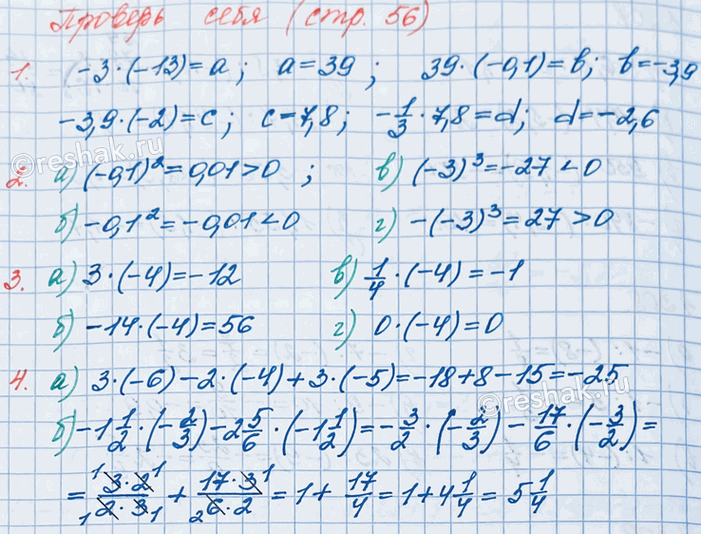 Проверь себя (стр. 56)
1. -3·(-13)=a; a=39; 39·(-0,1)=b; b=-3,9
-3,9·(-2)=c; c=7,8; -1/3·7,8=d; d=-2,6
2. а) (-0,1)²=0,01>0; в) (-3)³=-27<0
б) -0,1²=-0,01<0 г) -(-3)³=27>0
3. а) 3·(-4)=-12 в) 1/4·(-4)=-1
б) -14·(-4)=56 г) 0·(-4)=0
4. а) 3·(-6)-2·(-4)+3·(-5)=-18+8-15=-25
б) -1 1/2·(-2/3)-2 5/6·(-1 1/2)=-3/2·(-2/3)-17/6·(-3/2)=
= 3·2/2·3 + 17·3/6·2 = 1+ 17/4 = 1+4 1/4 = 5 1/4
©reshak.ru
©reshak.ru